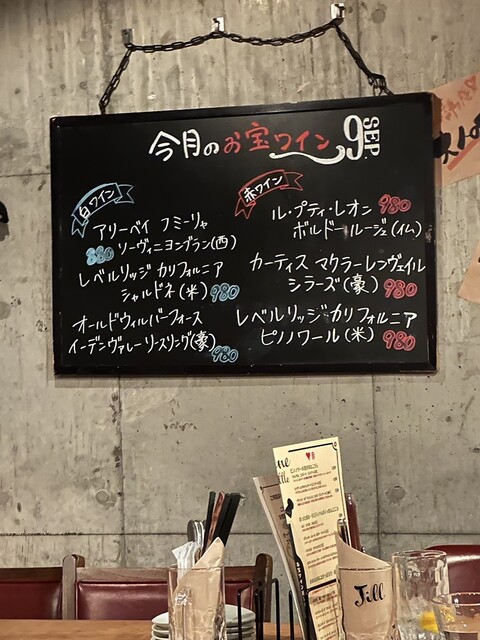 今月のお宝ワイン 9 SEP.
白ワイン
アリーベイ フミーリャ
880 ソーヴィニヨンブラン(西)
レベルリッジ カリフォルニア
シャルドネ(米) 980
オールドウィルバーフォース
イーデンヴァレーリースリング(豪) 980
赤ワイン
ル・プティ・レオン 980
ボルドールージュ(仏)
カーティス マクラーレンヴェイル
シラーズ(豪) 980
レベルリッジ カリフォルニア
ピノノワール(米) 980
Jill